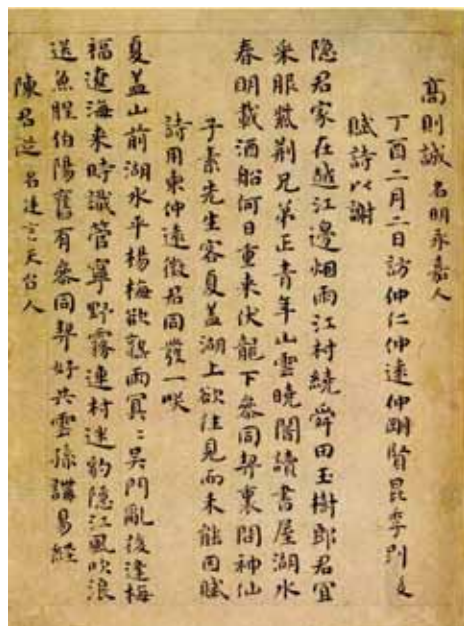 高則誠 名明永嘉人
丁酉二月二日訪仲仁仲遠仲剛賢昆季別後
賦詩以謝
隐君家在越江邊烟雨江村繞舜田玉樹郎君宜
采服紫荆兄弟正青年山雲晚閣讀書屋湖水
春明載酒船何日重來伏龍下參同契裏問神仙
子素先生客夏盖湖上欲往見而未能因賦
詩用柬仲遠徵君同發一咲
夏盖山前湖水平楊梅欲熟雨冥冥吴門亂後逢梅
福遼海来時識管寧野霧連村迷豹隐江風吹浪
送魚腥伯陽舊有參同契好共雲孫講易經
陳君從 名達言天台人